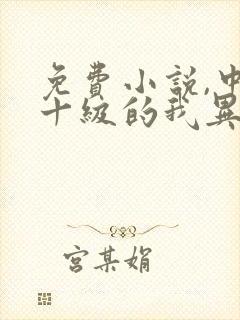 免費小說,中
十級的我異
宮某娟